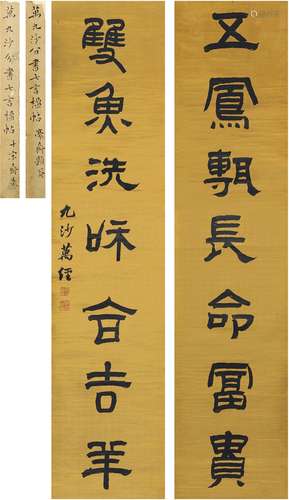 五鳳甎長命冨貴
雙魚洗咊合吉羊
九沙萬經
萬九沙八分書七言楹帖
萬九沙分書七言楹帖